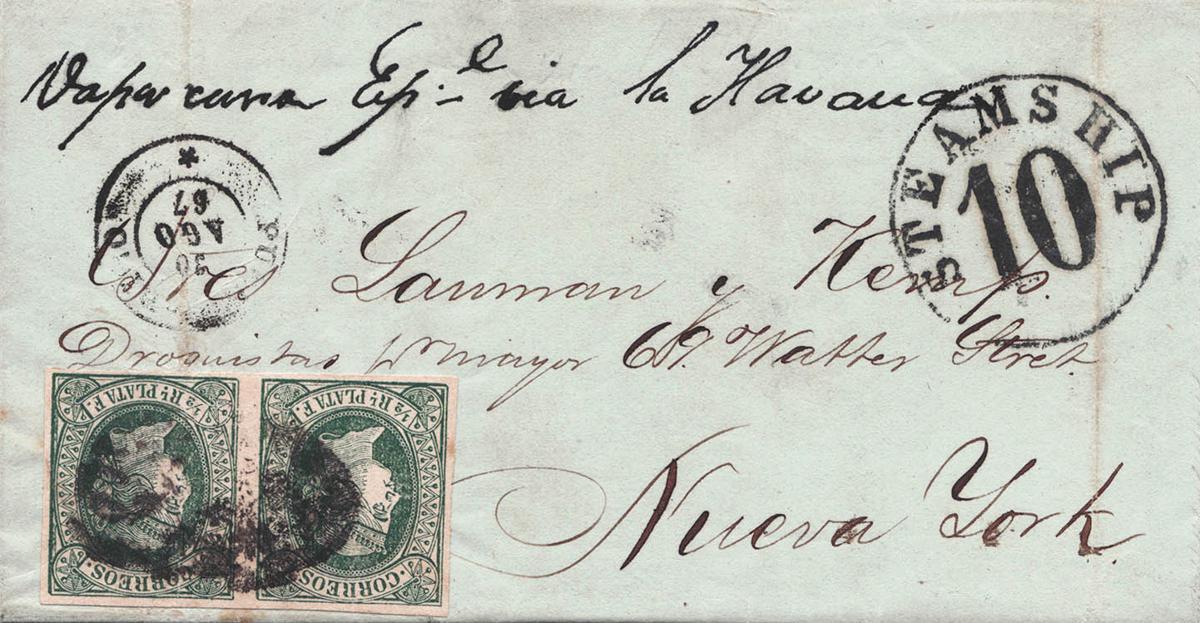 Vapor curreo Esp.l via la Havana
STEAMSHIP
10
AGO
67
Sres Lanman y Kemp.
Droguistas pr mayor 69. Watter Stret.
Nueva York.
½ RL PLATA F. ½ RL PLATA F.
CORREOS CORREOS